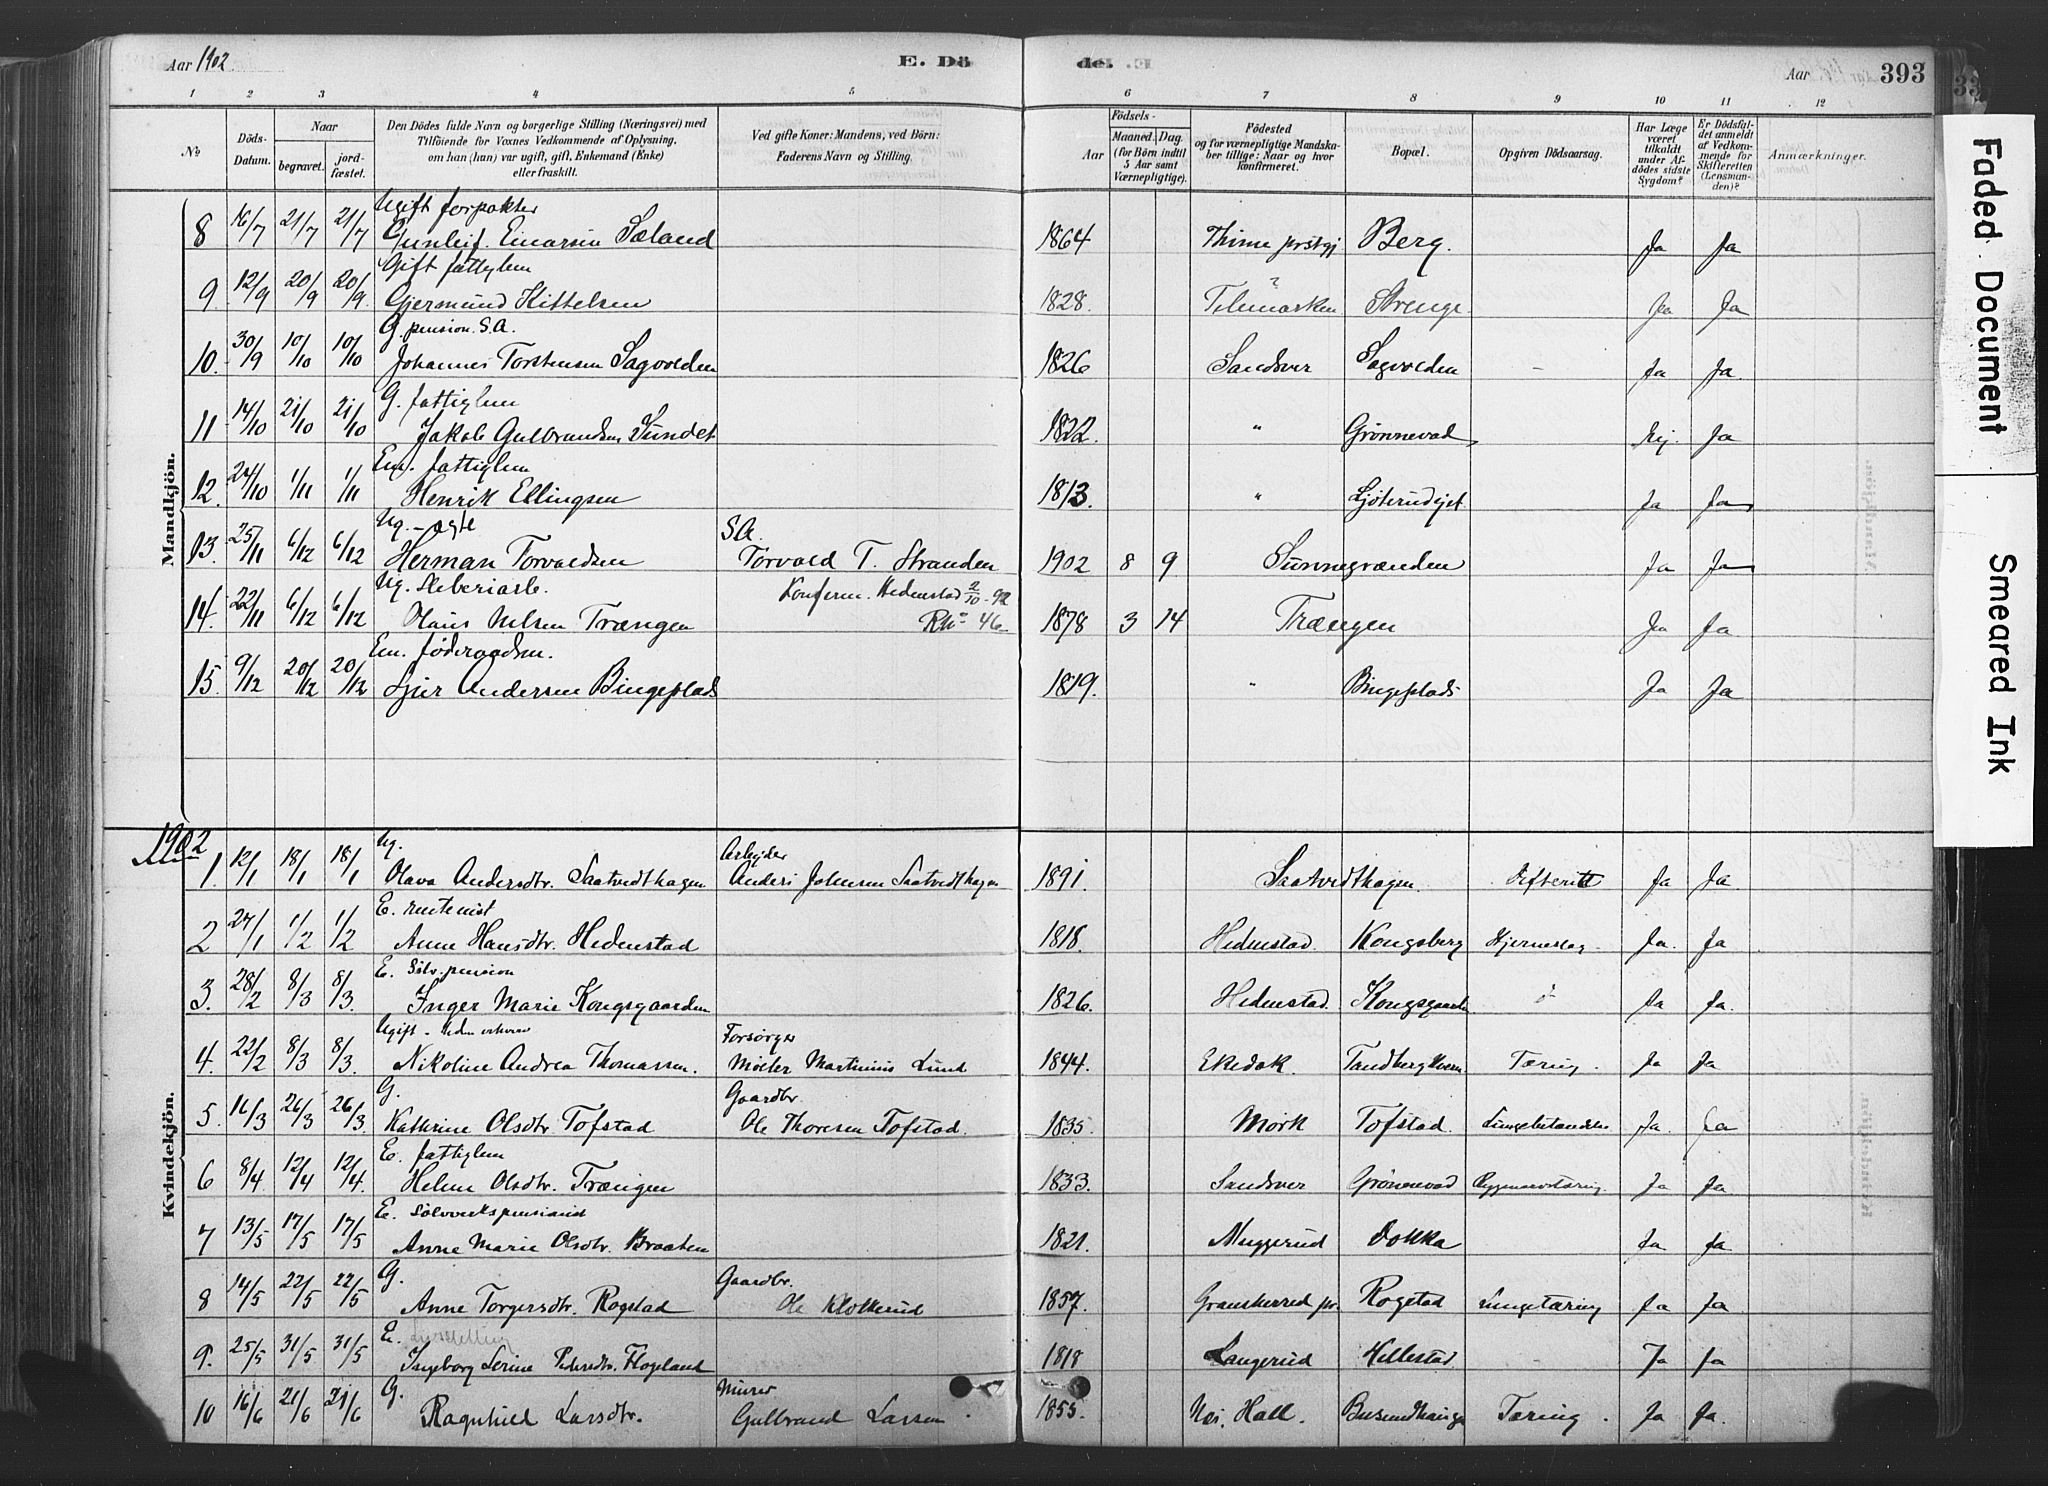 Aar 1902
E. Dö
del. E
Aar
393
1 2 3 4 5 6 7 8 9 10 11 12
No
Döds-Datum.
Naar
begravet.
jordfæstet.
Den Dödes fulde Navn og borgerlige Stilling (Næringsvei) med
Tilföiende for Voxnes Vedkommende af Oplysning,
om han (hun) var ugift, gift, Enkemand (Enke)
eller fraskilt.
Ved gifte Koner: Mandens, ved Börn:
Faderens Navn og Stilling.
Födsels-
Aar
Maaned. Dag.
(for Börn indtil
5 Aar samt
Værnepligtige).
Födested
og for værnepligtige Mandska-
ber tillige: Naar og hvor
konfirmeret.
Bopæl.
Opgiven Dödsaarsag.
Har Læge
været
tilkaldt
under Af-
dödes sidste
Sygdom?
Er Dödsfal-
det anmeldt
af Vedkom-
mende for
Skifteretten
(Lensman-
den)?
Anmærkninger.
Mandkjön.
Ugift forpakter
8 16/7 21/7 21/7 Gunleif Einarsen Sæland 1864 Thime prstgj Berg. Ja Ja
Gift fattiglem
9. 12/9 20/9 20/9. Gjermund Kittelsen 1828. Telemarken ? Strenge. Ja Ja
G. pension. S.A.
10. 30/9 10/10 10/10 Johannes Torstensen Sagvolden 1826 Sandsver Sagvolden - Ja Ja.
G. fattiglem
11 14/10 21/10 21/10 Jakob Gulbrandsen Sundet 1822. " Grønnevad Nej. Ja
Em. fattiglem
12. 24/10 1/11 1/11 Henrik Ellingsen 1813. " Ljøterudejet Ja Ja
Ug. - ægte S.A.
13. 25/11 6/12 6/12 Herman Torvaldsen Torvald T. Stranden 1902 8 9 Sunnegrænden Ja Ja
Ug. Sleberiarb. Konferm. Hedenstad 2/10 - 92
14. 22/11 6/12 6/12 Hans Nilsen Trængen No 46 1878 3 14 Trængen Ja Ja
Em. föderaadsm.
15. 9/12 20/12 20/12 Sjur Andersen Bingeplads 1819. " Bingeplads Ja Ja
1902
Kvindekjön.
Ug. Arbejder
1. 12/1 18/1 18/1 Olava Andersdtr. Saatvedthagen Anders Johnsen Saatvedthagen 1891. Saatvedthagen. Difterit Ja Ja.
E. rentenist
2 27/1 1/2 1/2 Anne Hansdtr. Hedenstad 1818. Hedenstad. Kongsberg Hjerneslag. Ja. Ja
E. Sölv. pension
3. 28/2 8/3 8/3. Inger Marie Kongsgaarden 1826. Hedenstad. Kongsgaarden Ja Ja.
Ugift - uden erhverv Forsørger
4. 22/2 8/3 8/3. Nikoline Andrea Thomassen. Møller Martinius Lund 1844. Ekedok. Tandberg Kvern Tæring. Ja Ja
G. Gaardbr.
5. 16/3 26/3 26/3. Kathrine Olsdtr. Tofstad Ole Thoresen Tofstad. 1835. Mørk Tofstad. Lungebetændelse Ja. Ja
E. fattiglem
6 8/4 12/4 12/4. Helene Olsdtr. Trængen 1833. Sandsver Grönnevad Rygmarvstæring. Ja Ja
E. Sølvverkspensionist
7 13/5 17/5 17/5 Anne Marie Olsdtr. Braaten 1821. Muggerud Dokka Ja Ja.
G. Gaardbr.
8 14/5 22/5 22/5 Anne Torgersdtr. Rogstad Ole Klokkerud 1857. Gransherred pr. Rogstad Lungetæring Ja Ja.
E.
9. 25/5 31/5 31/5 Ingeborg Serine Pedersdtr. Flogeland 1818 Langerud Hellestad - Ja Ja
G. Murer
10 16/6 21/6 21/6 Ragnhild Larsdtr. Gulbrand Larsen 1855. Næs, Hall. Busundhauge Tæring. Ja Ja.
Faded Document
Smeared Ink